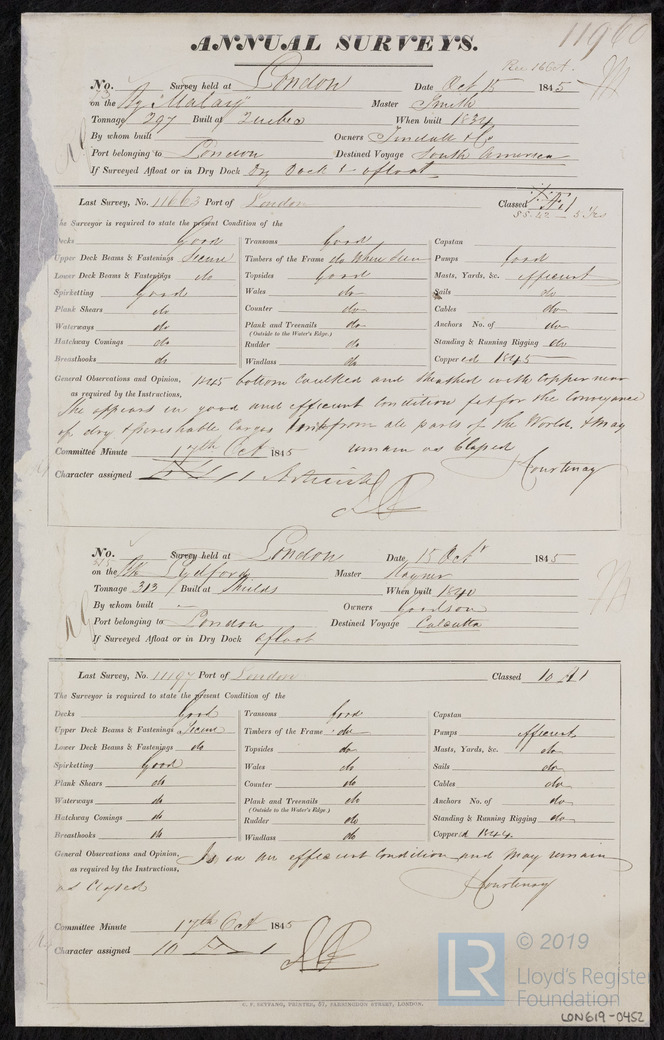 11960
ANNUAL SURVEYS.
Rec 16 Oct.
No. Survey held at London Date Oct 15 1845
on the "Malay" Master Smith
Tonnage 297 Built at Quebec When built 1834
By whom built Owners Tindall & Co
Port belonging to London Destined Voyage South America
If Surveyed Afloat or in Dry Dock Dry Dock & afloat
Last Survey, No. 11663 Port of London Classed
The Surveyor is required to state the present Condition of the
Decks Good Transoms Good Capstan
Upper Deck Beams & Fastenings Secure Timbers of the Frame do Where Seen Pumps Good
Lower Deck Beams & Fastenings do Topsides Good Masts, Yards, &c. efficient
Spirketting Good Wales do Sails do
Plank Shears do Counter do Cables do
Waterways do Plank and Treenails do Anchors No. of do
(Outside to the Water's Edge.)
Hatchway Comings do Rudder do Standing & Running Rigging do
Breasthooks do Windlass do Coppered 1845
General Observations and Opinion, 1845 bottom Caulked and Sheathed with Copper new
as required by the Instructions,
She appears in good and efficient Condition fit for the Conveyance
of dry & perishable Cargos from all parts of the World, & may
Committee Minute 17th Oct 1845 remain as Classed
Character assigned Courtenay
No. Survey held at London Date 15 Octr 1845
on the Lydford Master Rayner
Tonnage 313 Built at Shields When built 1840
By whom built - Owners Goodson
Port belonging to London Destined Voyage Calcutta
If Surveyed Afloat or in Dry Dock afloat
Last Survey, No. 11197 Port of London Classed 10 A1
The Surveyor is required to state the present Condition of the
Decks Good Transoms Good Capstan
Upper Deck Beams & Fastenings Secure Timbers of the Frame do Pumps efficient
Lower Deck Beams & Fastenings do Topsides do Masts, Yards, &c. do
Spirketting Good Wales do Sails do
Plank Shears do Counter do Cables do
Waterways do Plank and Treenails do Anchors No. of do
(Outside to the Water's Edge.)
Hatchway Comings do Rudder do Standing & Running Rigging do
Breasthooks do Windlass do Coppered 1844
General Observations and Opinion, Is in an efficient Condition and may remain
as required by the Instructions,
as Classed Courtenay
Committee Minute 17th Oct 1845
Character assigned 10 A 1
C. F. SEYFANG, PRINTER, 57, FARRINGDON STREET, LONDON.
LR © 2019
Lloyd's Register
Foundation
LON619-0452